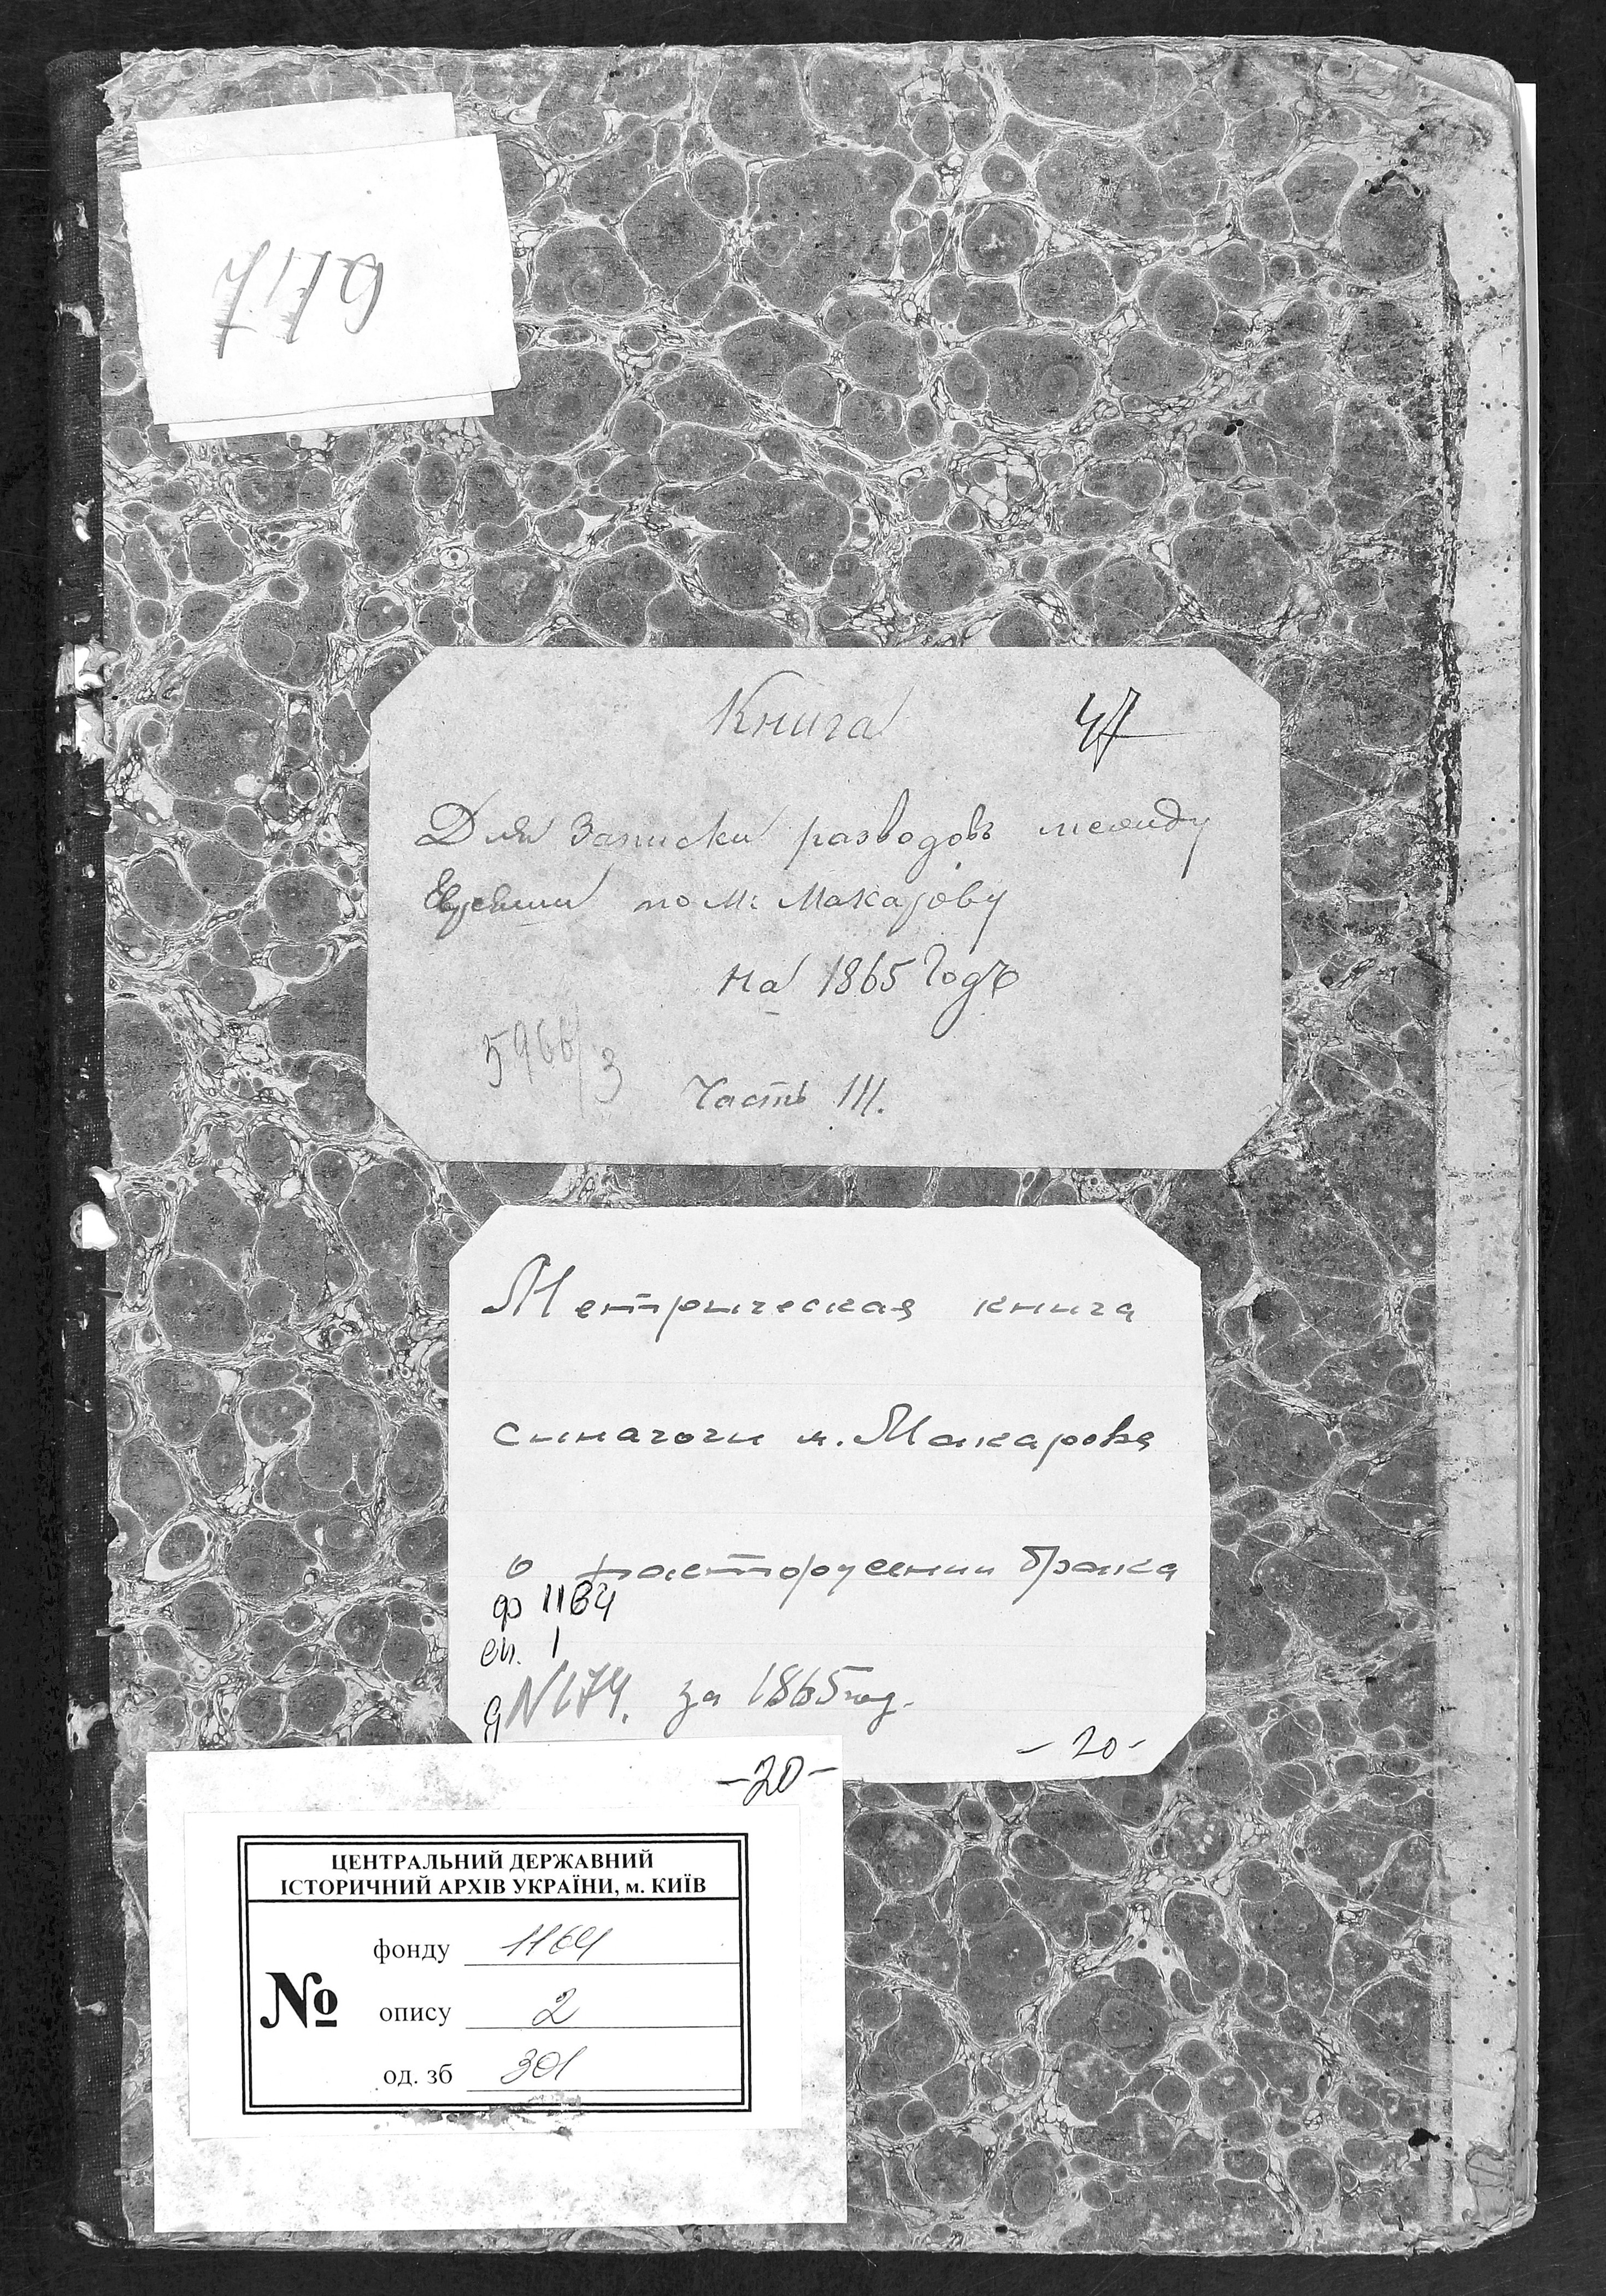 7119
Книга
47
Для Записки разводовъ между
Евреями по м: Макарову
на 1865 Годъ
5966/3
Часть III.
Метрическая книга
синагоги м. Макарова
о расторжении брака
ф 1164
оп. 1
д N174. за 1865 год.
- 20 -
- 20 -
ЦЕНТРАЛЬНИЙ ДЕРЖАВНИЙ
ІСТОРИЧНИЙ АРХІВ УКРАЇНИ, м. КИЇВ
№
фонду 1164
опису 2
од. зб 301